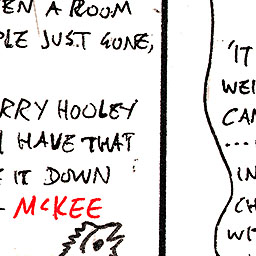 EN A ROOM
PLE JUST GONE,
RRY HOOLEY
I HAVE THAT
E IT DOWN
- MCKEE
'IT
WEI
CAN
....
IN
CH
WIT